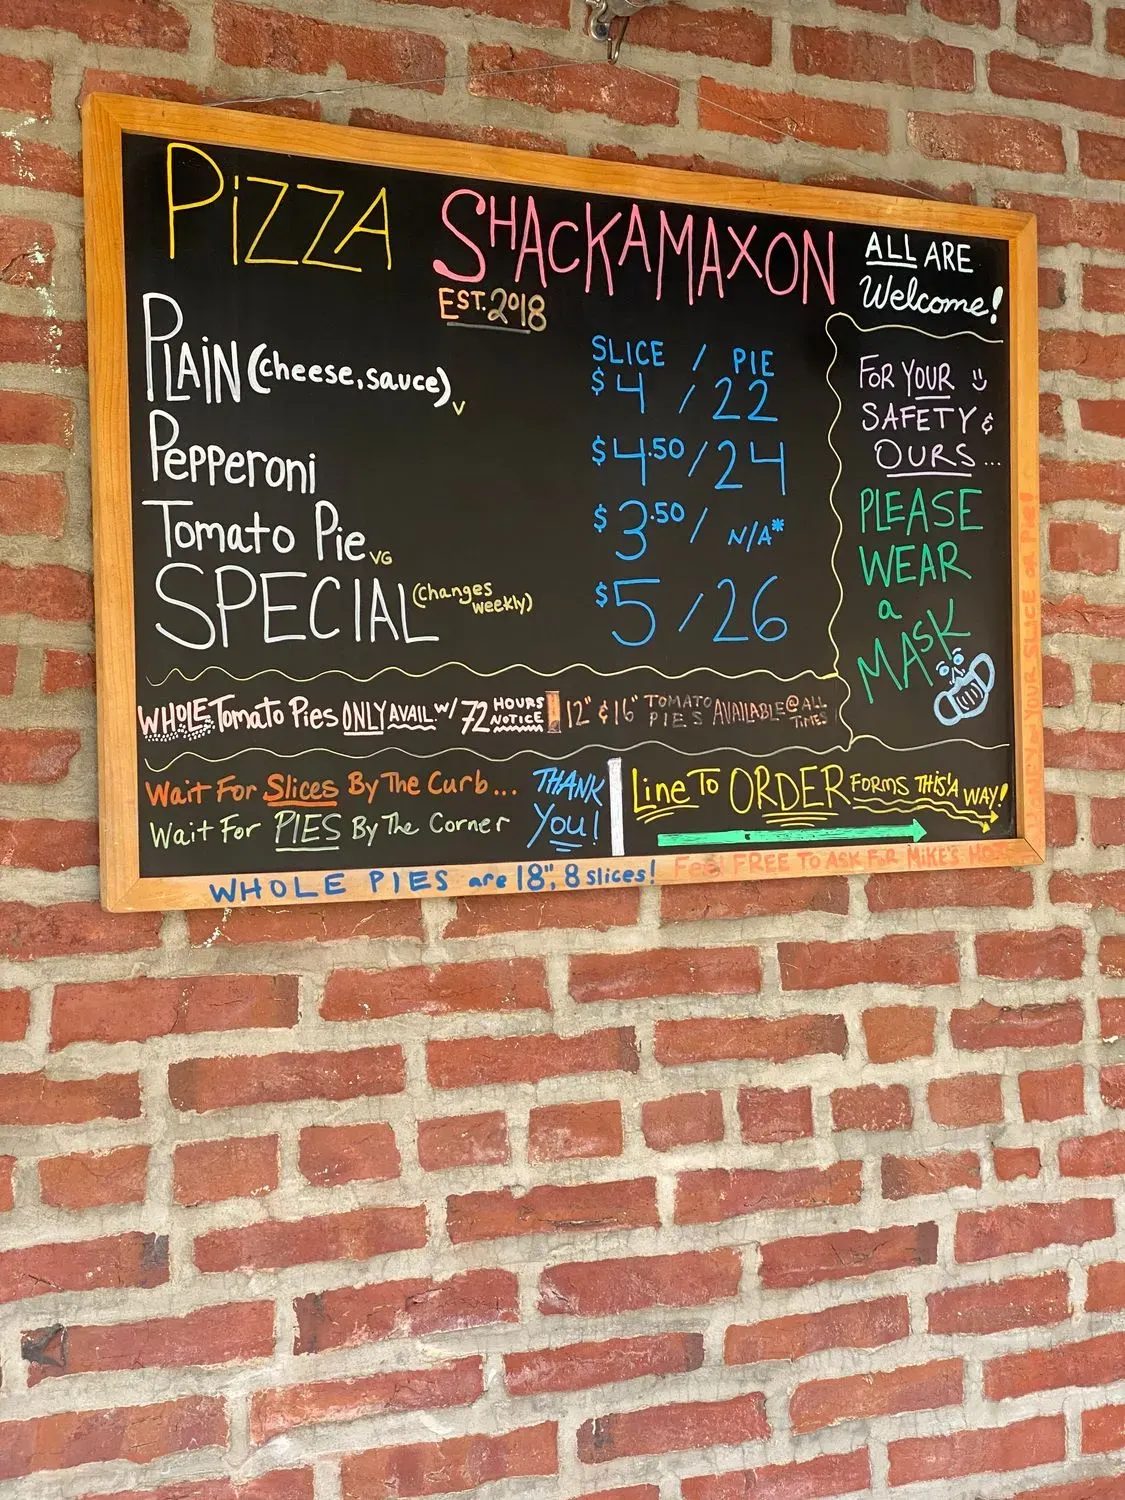 PIZZA SHACKAMAXON
EST. 2018
ALL ARE
Welcome!
SLICE / PIE
PLAIN (cheese, sauce) V $4 / 22
Pepperoni $4.50 / 24
Tomato Pie VG $3.50 / N/A*
SPECIAL (changes weekly) $5 / 26
FOR YOUR
SAFETY &
OURS...
PLEASE
WEAR
a
MASK
WHOLE Tomato Pies ONLY AVAIL. w/ 72 HOURS NOTICE
12" & 16" TOMATO PIES AVAILABLE @ ALL TIMES
Wait For Slices By The Curb...
Wait For PIES By The Corner
THANK
You!
Line To ORDER FORMS THIS'A WAY!
WHOLE PIES are 18", 8 slices! Feel FREE TO ASK FOR MIKE'S
YOUR SLICE OR PIE!